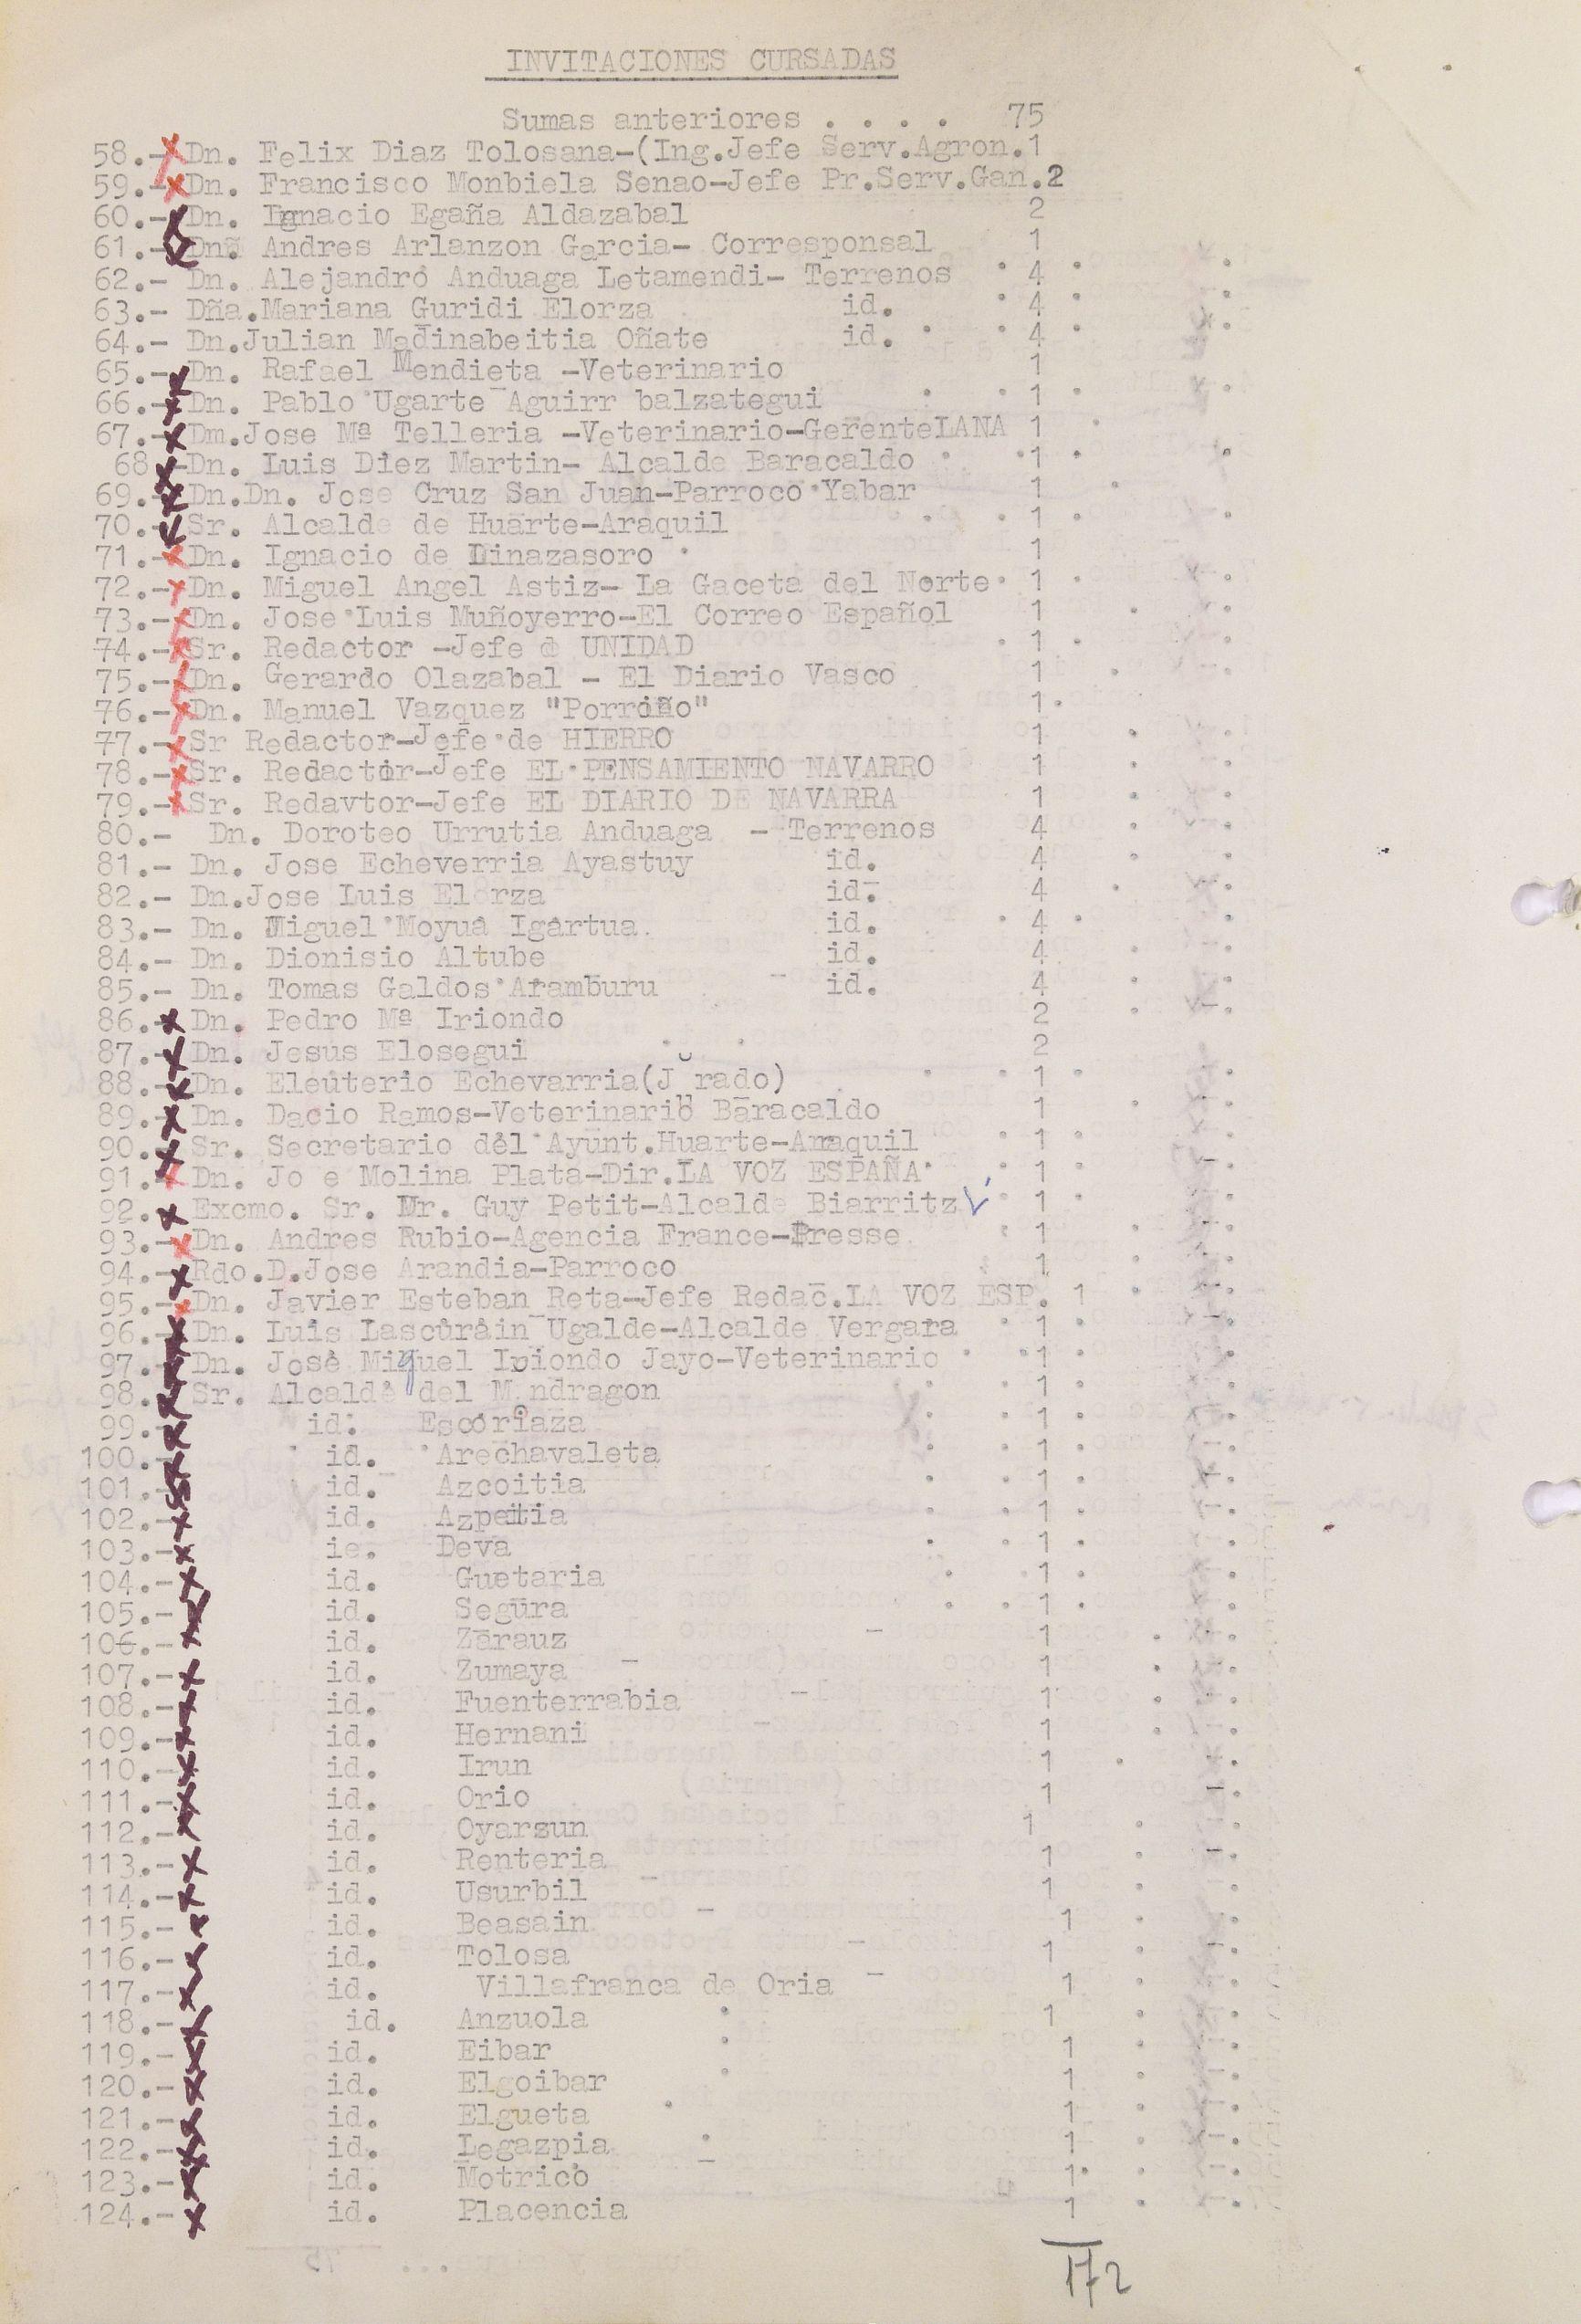 INVITACIONES CURSADAS
Sumas anteriores . . . . 75
58.- Dn. Felix Diaz Tolosana-(Ing.Jefe Serv.Agron.1
59.- Dn. Francisco Monbiela Senao-Jefe Pr.Serv.Gan.2
60.- Dn. Ignacio Egaña Aldazabal 2
61.- Dn. Andres Arlanzon Garcia- Corresponsal 1
62.- Dn. Alejandro Anduaga Letamendi- Terrenos 4
63.- Dña.Mariana Guridi Elorza id. 4
64.- Dn.Julian Madinabeitia Oñate id. 4
65.- Dn. Rafael Mendieta -Veterinario 1
66.- Dn. Pablo Ugarte Aguirr balzategui 1
67.- Dm.Jose Mª Telleria -Veterinario-GerenteLANA 1
68.-Dn. Luis Diez Martin- Alcalde Baracaldo 1
69.- Dn.Dn. Jose Cruz San Juan-Parroco Yabar 1
70.- Sr. Alcalde de Huarte-Araquil 1
71.- Dn. Ignacio de Linazasoro 1
72.- Dn. Miguel Angel Astiz- La Gaceta del Norte 1
73.- Dn. Jose Luis Muñoyerro-El Correo Español 1
74.- Sr. Redactor -Jefe d UNIDAD 1
75.- Dn. Gerardo Olazabal - El Diario Vasco 1
76.- Dn. Manuel Vazquez "Porriño" 1
77.- Sr Redactor-Jefe de HIERRO 1
78.- Sr. Redactor-Jefe EL PENSAMIENTO NAVARRO 1
79.- Sr. Redavtor-Jefe EL DIARIO DE NAVARRA 1
80.- Dn. Doroteo Urrutia Anduaga - Terrenos 4
81.- Dn. Jose Echeverria Ayastuy id. 4
82.- Dn.Jose Luis Elorza id. 4
83.- Dn. Miguel Moyua Igartua id. 4
84.- Dn. Dionisio Altube id. 4
85.- Dn. Tomas Galdos Aramburu id. 4
86.- Dn. Pedro Mª Iriondo 2
87.- Dn. Jesus Elosegui 2
88.- Dn. Eleuterio Echevarria(Jurado) 1
89.- Dn. Dacio Ramos-Veterinario Baracaldo 1
90.- Sr. Secretario del Ayunt.Huarte-Araquil 1
91.- Dn. Jo e Molina Plata-Dir.LA VOZ ESPAÑA 1
92.- Excmo. Sr. Mr. Guy Petit-Alcalde Biarritz 1
93.- Dn. Andres Rubio-Agencia France-Presse 1
94.- Rdo.D.Jose Arandia-Parroco 1
95.- Dn. Javier Esteban Reta-Jefe Redac.LA VOZ ESP. 1
96.- Dn. Luis Lascurain Ugalde-Alcalde Vergara 1
97.- Dn. José Miguel Iriondo Jayo-Veterinario 1
98.- Sr. Alcalde del M ndragon 1
99.- id. Escoriaza 1
100.- id. Arechavaleta 1
101.- id. Azcoitia 1
102.- id. Azpeitia 1
103.- ie. Deva 1
104.- id. Guetaria 1
105.- id. Segura 1
106.- id. Zarauz 1
107.- id. Zumaya 1
108.- id. Fuenterrabia 1
109.- id. Hernani 1
110.- id. Irun 1
111.- id. Orio 1
112.- id. Oyarzun 1
113.- id. Renteria 1
114.- id. Usurbil 1
115.- id. Beasain 1
116.- id. Tolosa 1
117.- id. Villafranca de Oria 1
118.- id. Anzuola 1
119.- id. Eibar 1
120.- id. Elgoibar 1
121.- id. Elgueta 1
122.- id. Legazpia 1
123.- id. Motrico 1
124.- id. Placencia 1
172